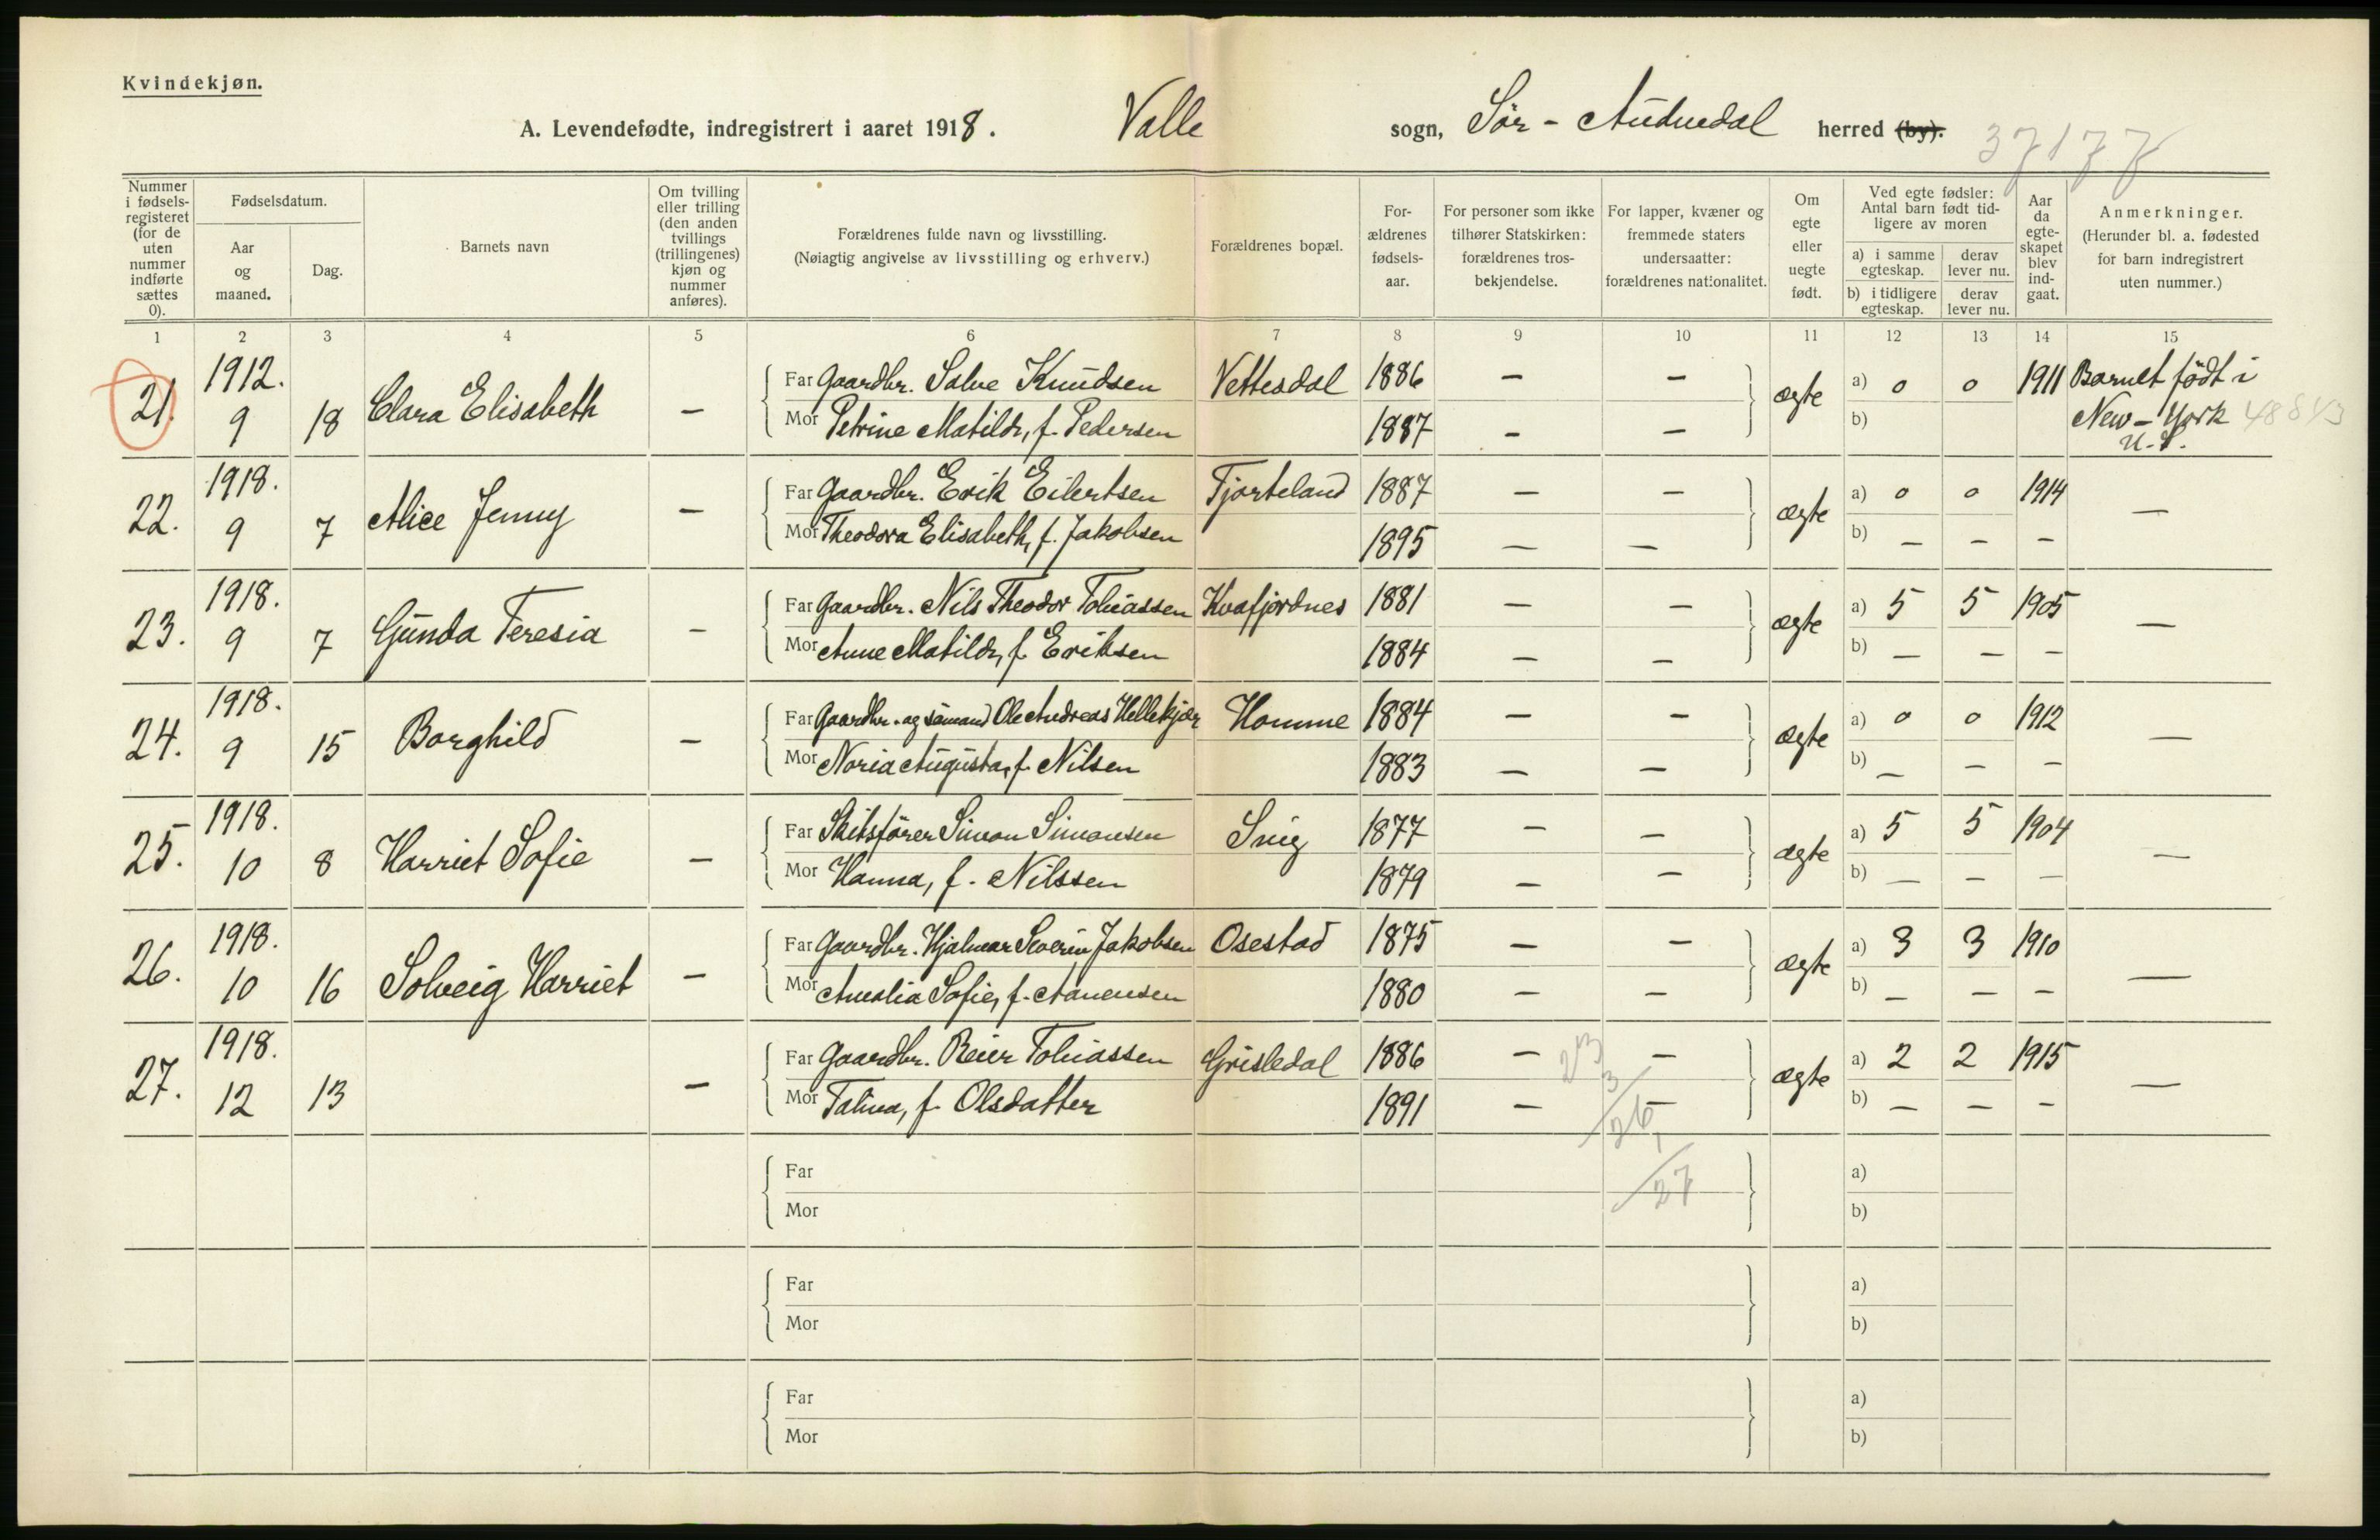 Kvindekjøn.
A. Levendefødte, indregistrert i aaret 1918. Valle sogn, Sör - Audnedal herred (by).
37177
Nummer i fødselsregisteret (for de uten nummer indførte sættes 0).
Fødselsdatum.
Aar og maaned.
Dag.
Barnets navn
Om tvilling eller trilling (den anden tvillings (trillingenes) kjøn og nummer anføres).
Forældrenes fulde navn og livsstilling.
(Nøiagtig angivelse av livsstilling og erhverv.)
Forældrenes bopæl.
Forældrenes fødselsaar.
For personer som ikke tilhører Statskirken: forældrenes trosbekjendelse.
For lapper, kvæner og fremmede staters undersaatter: forældrenes nationalitet.
Om egte eller uegte født.
Ved egte fødsler: Antal barn født tidligere av moren
a) i samme egteskap. derav lever nu.
b) i tidligere egteskap. derav lever nu.
Aar da egteskapet blev indgaat.
Anmerkninger.
(Herunder bl. a. fødested for barn indregistrert uten nummer.)
1 2 3 4 5 6 7 8 9 10 11 12 13 14 15
21. 1912. 9 18 Clara Elisabeth — Far Gaardbr. Salve Knudsen Vettesdal 1886 — — ægte a) 0 0 1911 Barnet födt i
Mor Petrine Matilde, f. Pedersen 1887 — — b) New-York 48843
U.S.
22. 1918. 9 7 Alice Jenny — Far Gaardbr. Erik Eilertsen Tjorteland 1887 — — ægte a) 0 0 1914 —
Mor Theodora Elisabeth, f. Jakobsen 1895 — — b) — — —
23. 1918. 9 7 Gunda Teresia — Far Gaardbr. Nils Theodor Tobiassen Kvafjordnes 1881 — — ægte a) 5 5 1905 —
Mor Anne Matilde, f. Eriksen 1884 — — b) — — —
24. 1918. 9 15 Borghild — Far Gaardbr. og sömand Ole Andreas Hellekjær Homme 1884 — — ægte a) 0 0 1912 —
Mor Noria Augusta, f. Nilsen 1883 — — b) — — —
25. 1918. 10 8 Harriet Sofie — Far Skibsförer Simon Simonsen Snig 1877 — — ægte a) 5 5 1904 —
Mor Hanna, f. Nilssen 1879 — — b) — — —
26. 1918. 10 16 Solveig Harriet — Far Gaardbr. Hjalmar Severin Jakobsen Osestad 1875 — — ægte a) 3 3 1910 —
Mor Amalia Sofie, f. Aanensen 1880 — — b) — — —
27. 1918. 12 13 — Far Gaardbr. Reier Tobiassen Grisledal 1886 — — ægte a) 2 2 1915 —
Mor Talina, f. Olsdatter 1891 — — b) — — —
23
3
26
1
27
Far a)
Mor b)
Far a)
Mor b)
Far a)
Mor b)